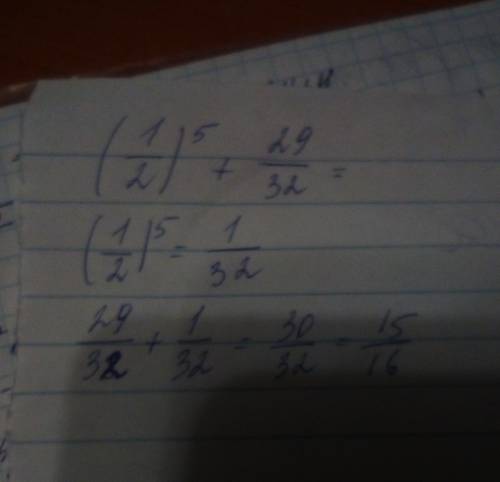 (1/2)^5 + 29/32 =
(1/2)^5 = 1/32
29/32 + 1/32 = 30/32 = 15/16